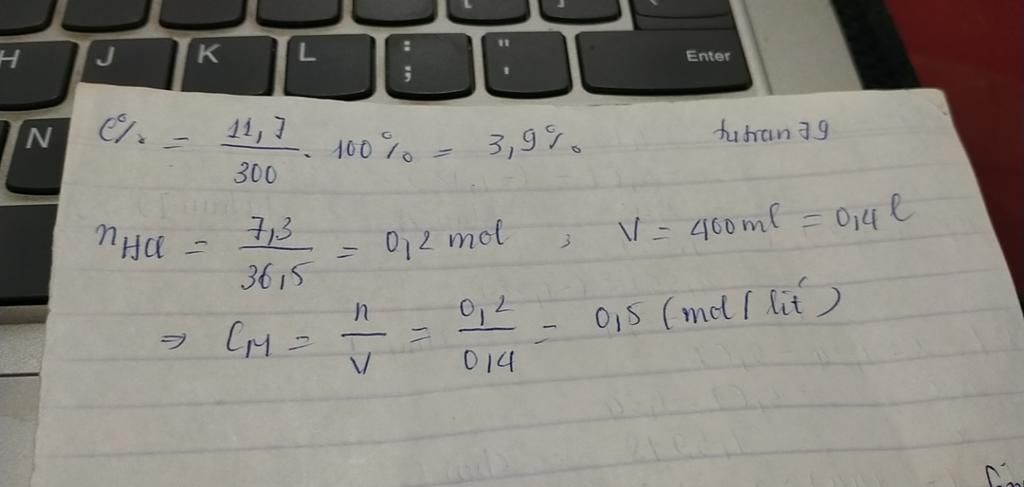 H J K L : ; " ' Enter
N
C% = 11,7/300 . 100% = 3,9% tutran79
nHCl = 7,3/36,5 = 0,2 mol ; V = 400ml = 0,4 l
⇒ CM = n/V = 0,2/0,4 = 0,5 (mol/lít)